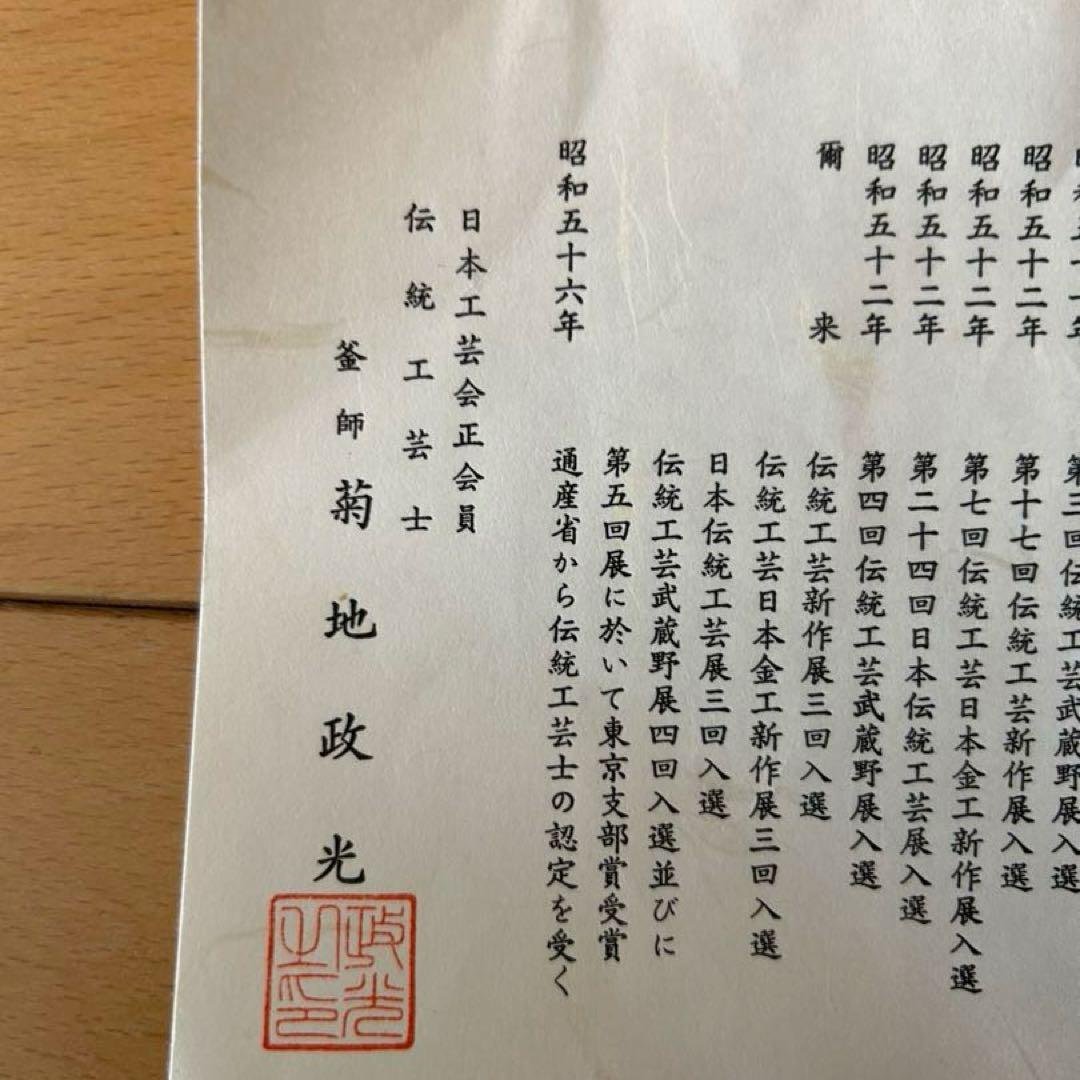 第三回伝統工芸武蔵野展入選
昭和五十二年 第十七回伝統工芸新作展入選
昭和五十二年 第七回伝統工芸日本金工新作展入選
昭和五十二年 第二十四回日本伝統工芸展入選
昭和五十二年 第四回伝統工芸武蔵野展入選
爾来 伝統工芸新作展三回入選
伝統工芸日本金工新作展三回入選
日本伝統工芸展三回入選
伝統工芸武蔵野展四回入選並びに
第五回展に於いて東京支部賞受賞
昭和五十六年 通産省から伝統工芸士の認定を受く
日本工芸会正会員
伝統工芸士
釜師 菊地政光
政光之印